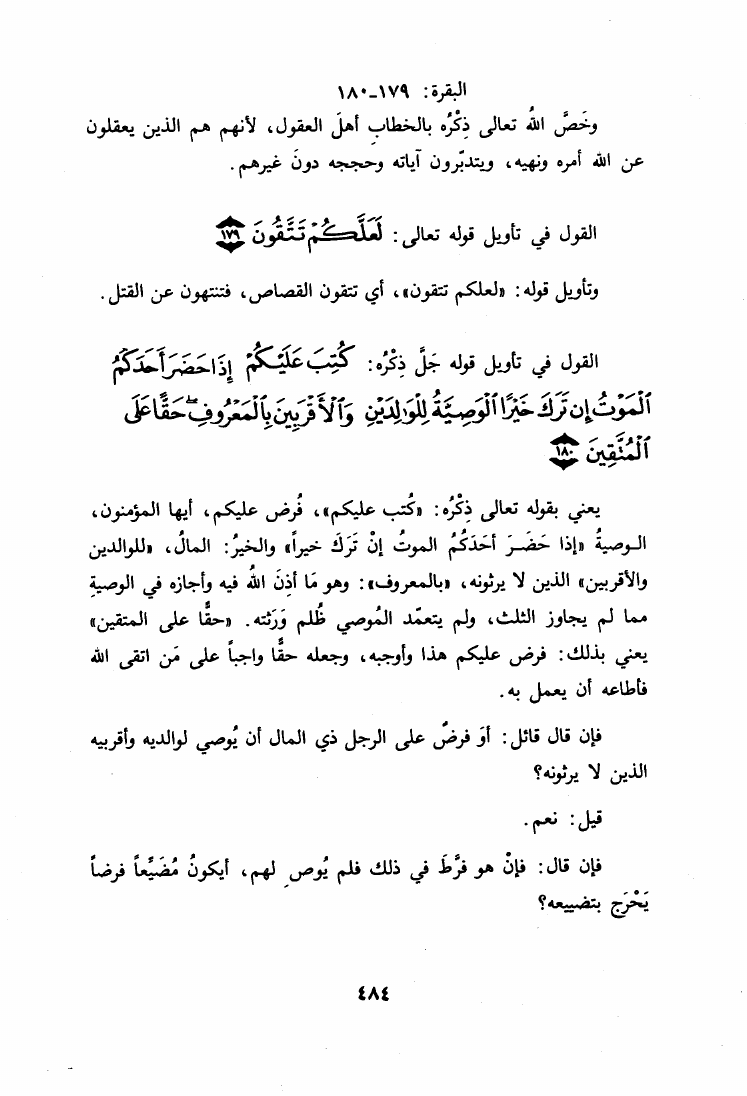 البقرة: ١٧٩-١٨٠
وخَصَّ اللهُ تعالى ذِكْرُه بالخطابِ أهلَ العقول، لأنهم هم الذين يعقلون
عن الله أمره ونهيه، ويتدبّرون آياته وحججه دونَ غيرهم.
القول في تأويل قوله تعالى: لَعَلَّكُمْ تَتَّقُونَ ١٧٩
وتأويل قوله: «لعلكم تتقون»، أي تتقون القصاص، فتنتهون عن القتل.
القول في تأويل قوله جَلَّ ذِكْرُه: كُتِبَ عَلَيْكُمْ إِذَا حَضَرَ أَحَدَكُمُ
ٱلْمَوْتُ إِن تَرَكَ خَيْرًا ٱلْوَصِيَّةُ لِلْوَٰلِدَيْنِ وَٱلْأَقْرَبِينَ بِٱلْمَعْرُوفِ ۖ حَقًّا عَلَى
ٱلْمُتَّقِينَ ١٨٠
يعني بقوله تعالى ذِكْرُه: «كُتب عليكم»، فُرض عليكم، أيها المؤمنون،
الوصيةُ «إذا حَضَرَ أحَدَكُمُ الموتُ إنْ تَرَكَ خيراً» والخيرُ: المالُ، «للوالدين
والأقربين» الذين لا يرثونه، «بالمعروف»: وهو مَا أذِنَ اللهُ فيه وأجازه في الوصيةِ
مما لم يجاوز الثلث، ولم يتعمّد المُوصي ظُلم وَرَثته. «حقًّا على المتقين»
يعني بذلك: فرض عليكم هذا وأوجبه، وجعله حقًّا واجباً على مَن اتقى الله
فأطاعه أن يعمل به.
فإن قال قائل: أوَ فرضٌ على الرجل ذي المال أن يُوصي لوالديه وأقربيه
الذين لا يرثونه؟
قيل: نعم.
فإن قال: فإنْ هو فرَّطَ في ذلك فلم يُوصِ لهم، أيكونُ مُضَيِّعاً فرضاً
يَحْرَج بتضييعه؟
٤٨٤